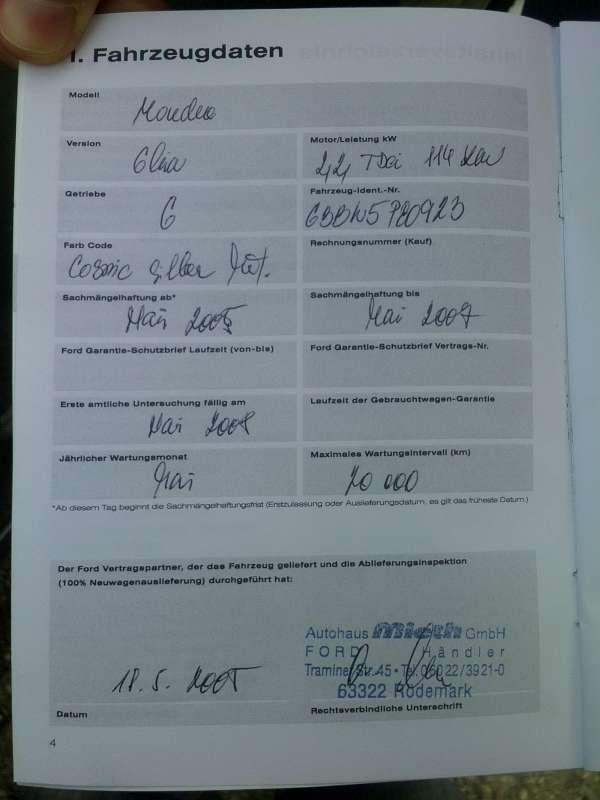 1. Fahrzeugdaten
Modell
Mondeo
Version
Ghia
Motor/Leistung kW
2,2 TDCi 114 kW
Getriebe
6
Fahrzeug-Ident.-Nr.
Farb Code
Cosmic Silber Met.
Rechnungsnummer (Kauf)
Sachmängelhaftung ab*
Mai 2005
Sachmängelhaftung bis
Mai 2007
Ford Garantie-Schutzbrief Laufzeit (von-bis)
Ford Garantie-Schutzbrief Vertrags-Nr.
Erste amtliche Untersuchung fällig am
Mai 2008
Laufzeit der Gebrauchtwagen-Garantie
Jährlicher Wartungsmonat
Mai
Maximales Wartungsintervall (km)
20 000
*Ab diesem Tag beginnt die Sachmängelhaftungsfrist (Erstzulassung oder Auslieferungsdatum, es gilt das früheste Datum.)
Der Ford Vertragspartner, der das Fahrzeug geliefert und die Ablieferungsinspektion
(100% Neuwagenauslieferung) durchgeführt hat:
Autohaus GmbH
FORD Händler
Traminer Str. 45 • Tel. 06022/3921-0
63322 Rödermark
18.5. 2005
Datum
Rechtsverbindliche Unterschrift
4